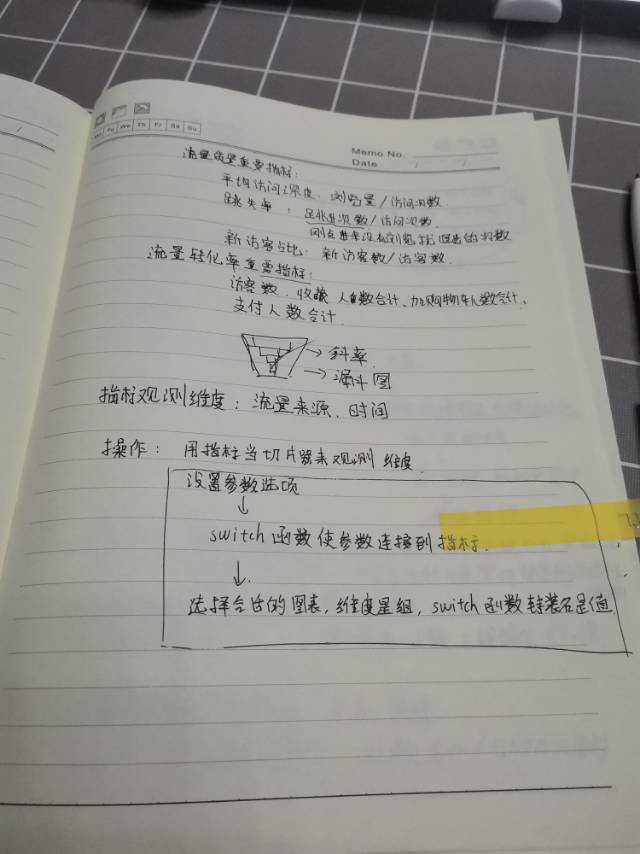 Tu We Th Fr Sa Su
Memo No.
Date / /
流量质量重要指标:
平均访问深度: 浏览量/访问次数
跳失率: 跳出次数/访问次数
刚点进来没有浏览就退出的次数
新访客占比: 新访客数/访客数
流量转化率重要指标:
访客数、收藏人数合计、加购物车人数合计、
支付人数合计
→斜率
→漏斗图
指标观测维度: 流量来源、时间
操作: 用指标当切片器来观测维度
设置参数选项
↓
switch函数使参数连接到指标
↓
选择合适的图表,维度是组,switch函数 是值